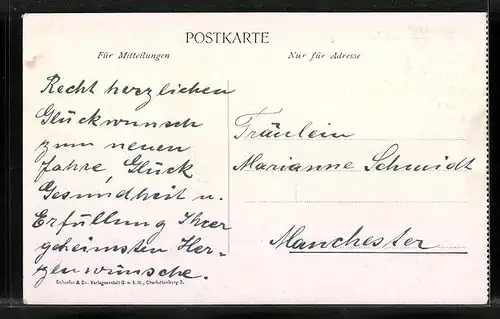 POSTKARTE
Für Mitteilungen
Nur für Adresse
Recht herzlichen
Glückwunsch
zum neuen
Jahre, Glück
Gesundheit u.
Erfüllung Ihrer
geheimsten Her-
zenwünsche.
Fräulein
Marianne Schmidt
Manchester
Schaefer & Co. Verlagsanstalt G. m. b. H., Charlottenburg 2.